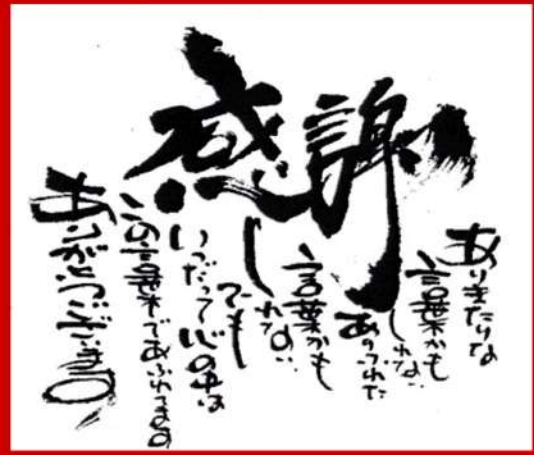 感謝
ありきたりな
言葉かも
しれない
あふれた
言葉かも
しれない
でも
いつだって心の中は
この言葉であふれてます
ありがとうございます